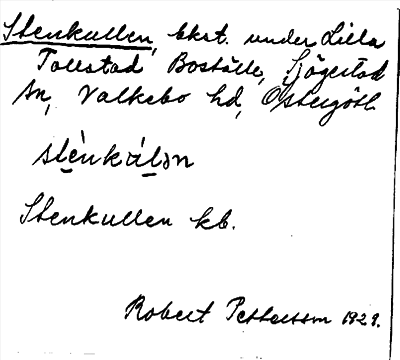 Stenkullen, bkst. under Lilla
Tollstad Boställe, Sjögestad
sn, Valkebo hd, Östergötl.
stènkúlən
Stenkullen kb.
Robert Pettersson 1929.